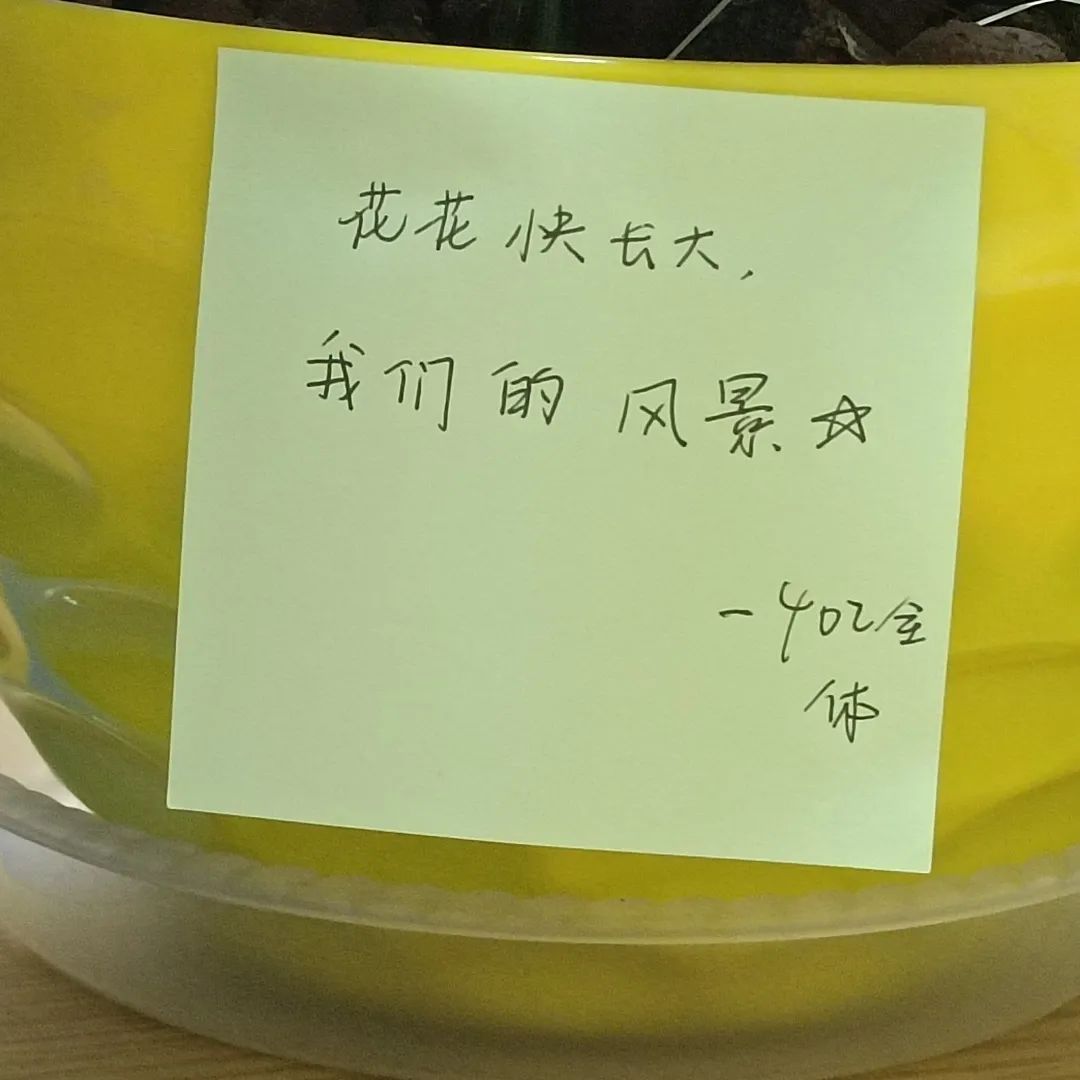 花花快长大,
我们的风景☆
-402全
体